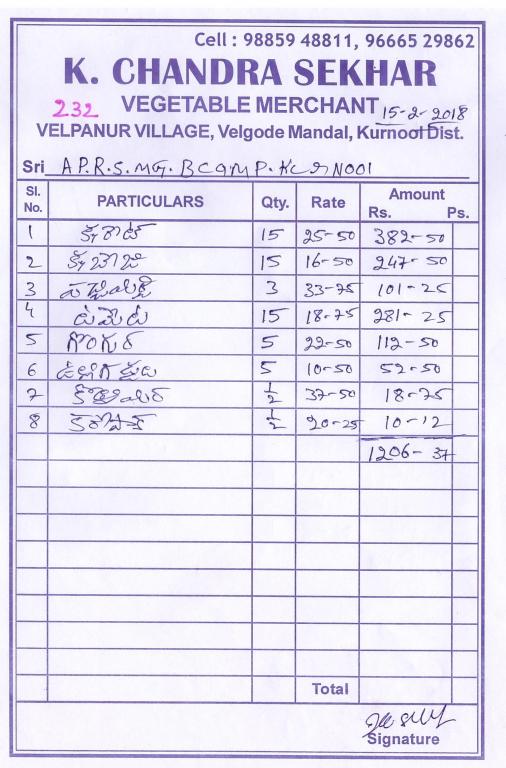 Cell : 98859 48811, 96665 29862
K. CHANDRA SEKHAR
232 VEGETABLE MERCHANT 15-2-2018
VELPANUR VILLAGE, Velgode Mandal, Kurnool Dist.
Sri A P.R.S. MG. B camp. Kurnool
Sl. No. PARTICULARS Qty. Rate Amount Rs. Ps.
1 క్యారెట్ 15 25-50 382-50
2 15 16-50 247-50
3 పచ్చిమిర్చి 3 33-75 101-25
4 టమోట 15 18-75 281-25
5 గోంగూర 5 22-50 112-50
6 5 10-50 52-50
7 ½ 37-50 18-75
8 ½ 20-25 10-12
1206-37
Total
Signature